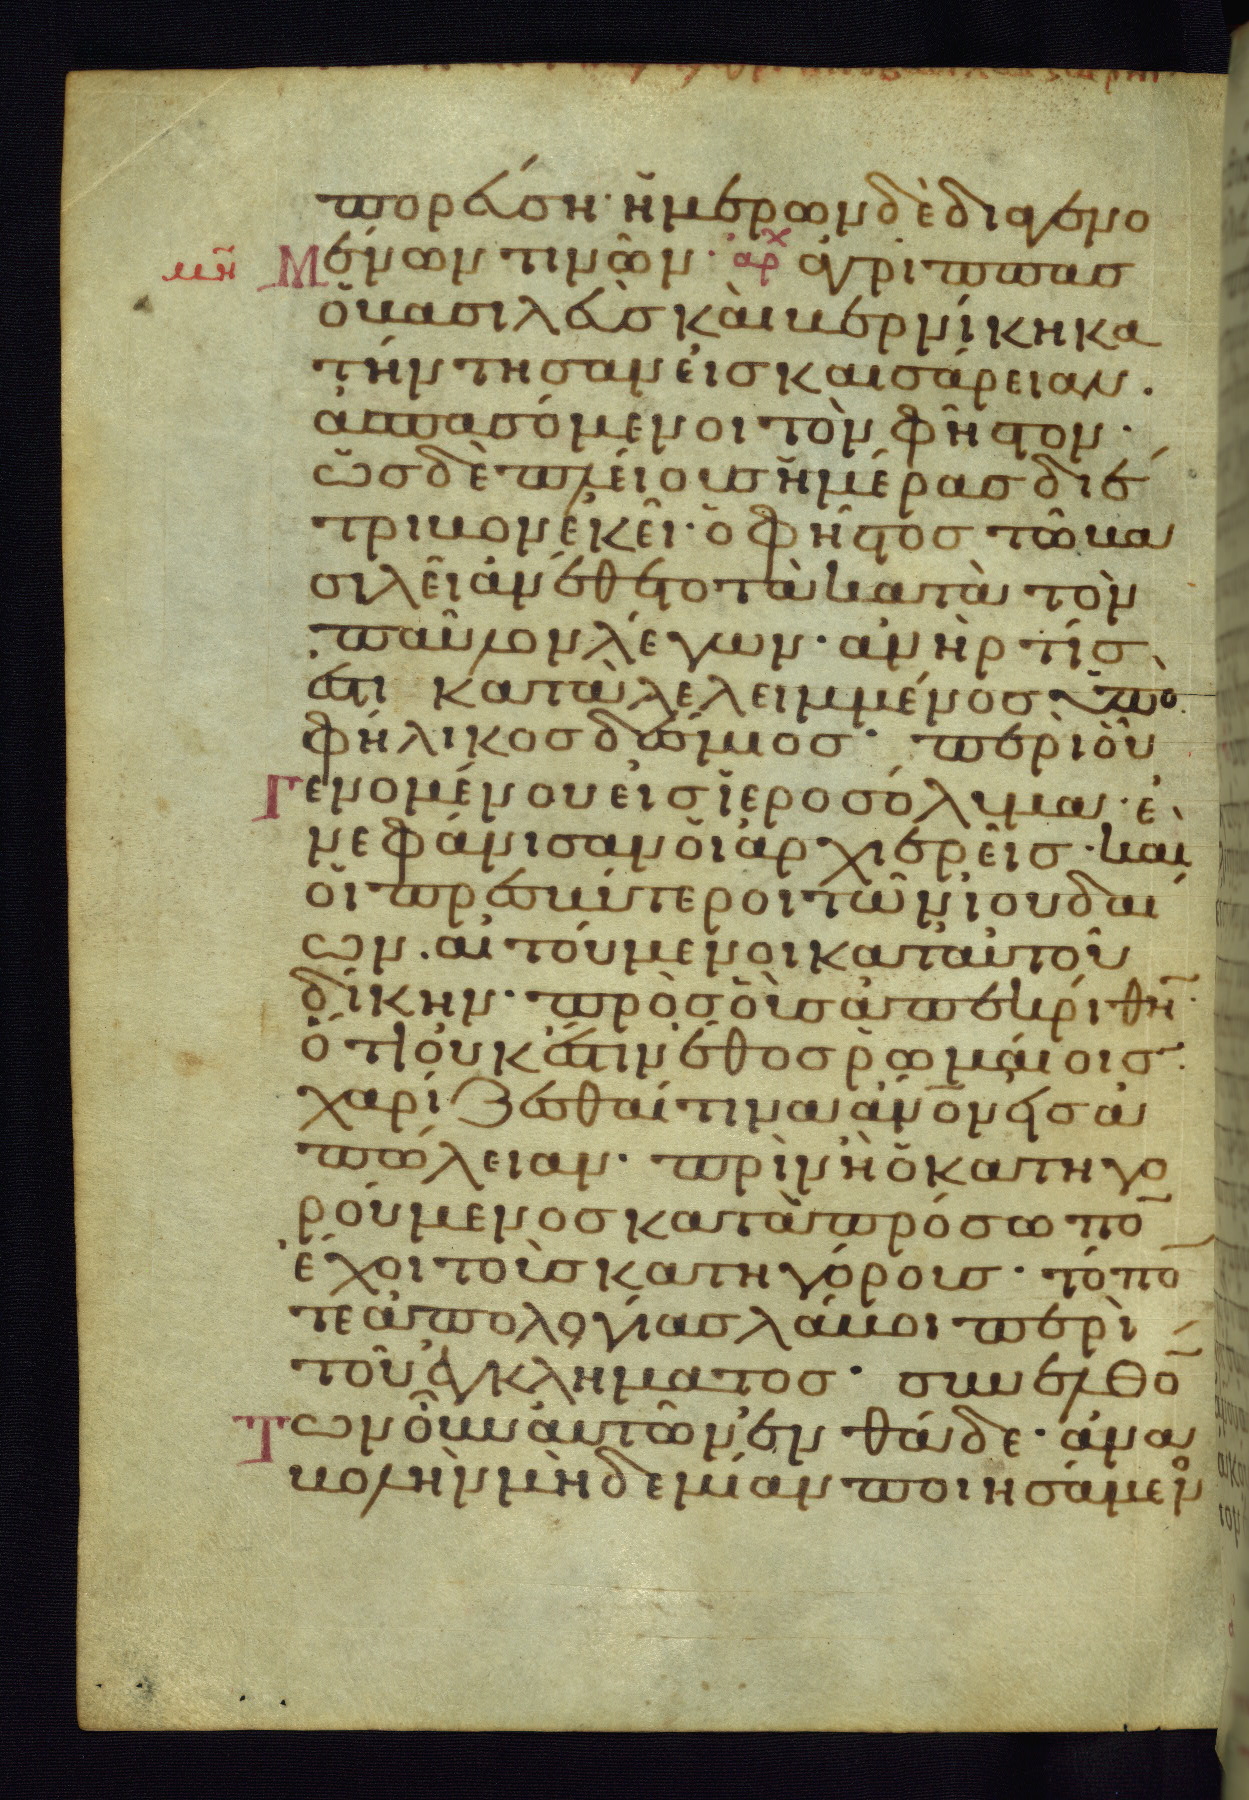 πορεύση· ἡμερων δὲ διαγενο
μῆ Μένων τινῶν· ἀρχ ἀγρίππας
ὁ βασιλεὺς καὶ βερνίκη κα
τήντησαν εἰς καισάρειαν.
ἀσπασόμενοι τὸν φῆστον·
ὡς δὲ πλείους ἡμέρας διέ
τριβον ἐκεῖ· ὁ φῆστος τῶ βα
σιλεῖ ἀνέθετο τὰ κατὰ τὸν
παῦλον λέγων· ἀνὴρ τίς
ἐστι καταλελειμμένος ὑπὸ
φήλικος δέσμιος· περὶ οὗ
Γενομένου εἰς ἱεροσόλυμα· ἐ
νεφάνισαν οἱ ἀρχιερεῖς· καὶ
οἱ πρεσβύτεροι τῶν ἰουδαί
ων. αἰτούμενοι κατ' αὐτοῦ
δίκην· πρὸς οὓς ἀπεκρίθη̄·
ὅτι οὐκ ἔστιν ἔθος ῥωμαίοις·
χαρίζεσθαί τινα ἄν̅ο̅ν εἰς ἀ
πώλειαν· πρὶν ἢ ὁ κατηγο
ρούμενος κατὰ πρόσωπο̄
ἔχοι τοὺς κατηγόρους· τόπο̄
τε ἀπολογίας λάβοι περὶ
τοῦ ἐγκλήματος· συνελθο̄
Τ ων οὖν αὐτῶν ἐνθάδε· ἀνα
βολὴν μὴδεμίαν ποιησάμενο